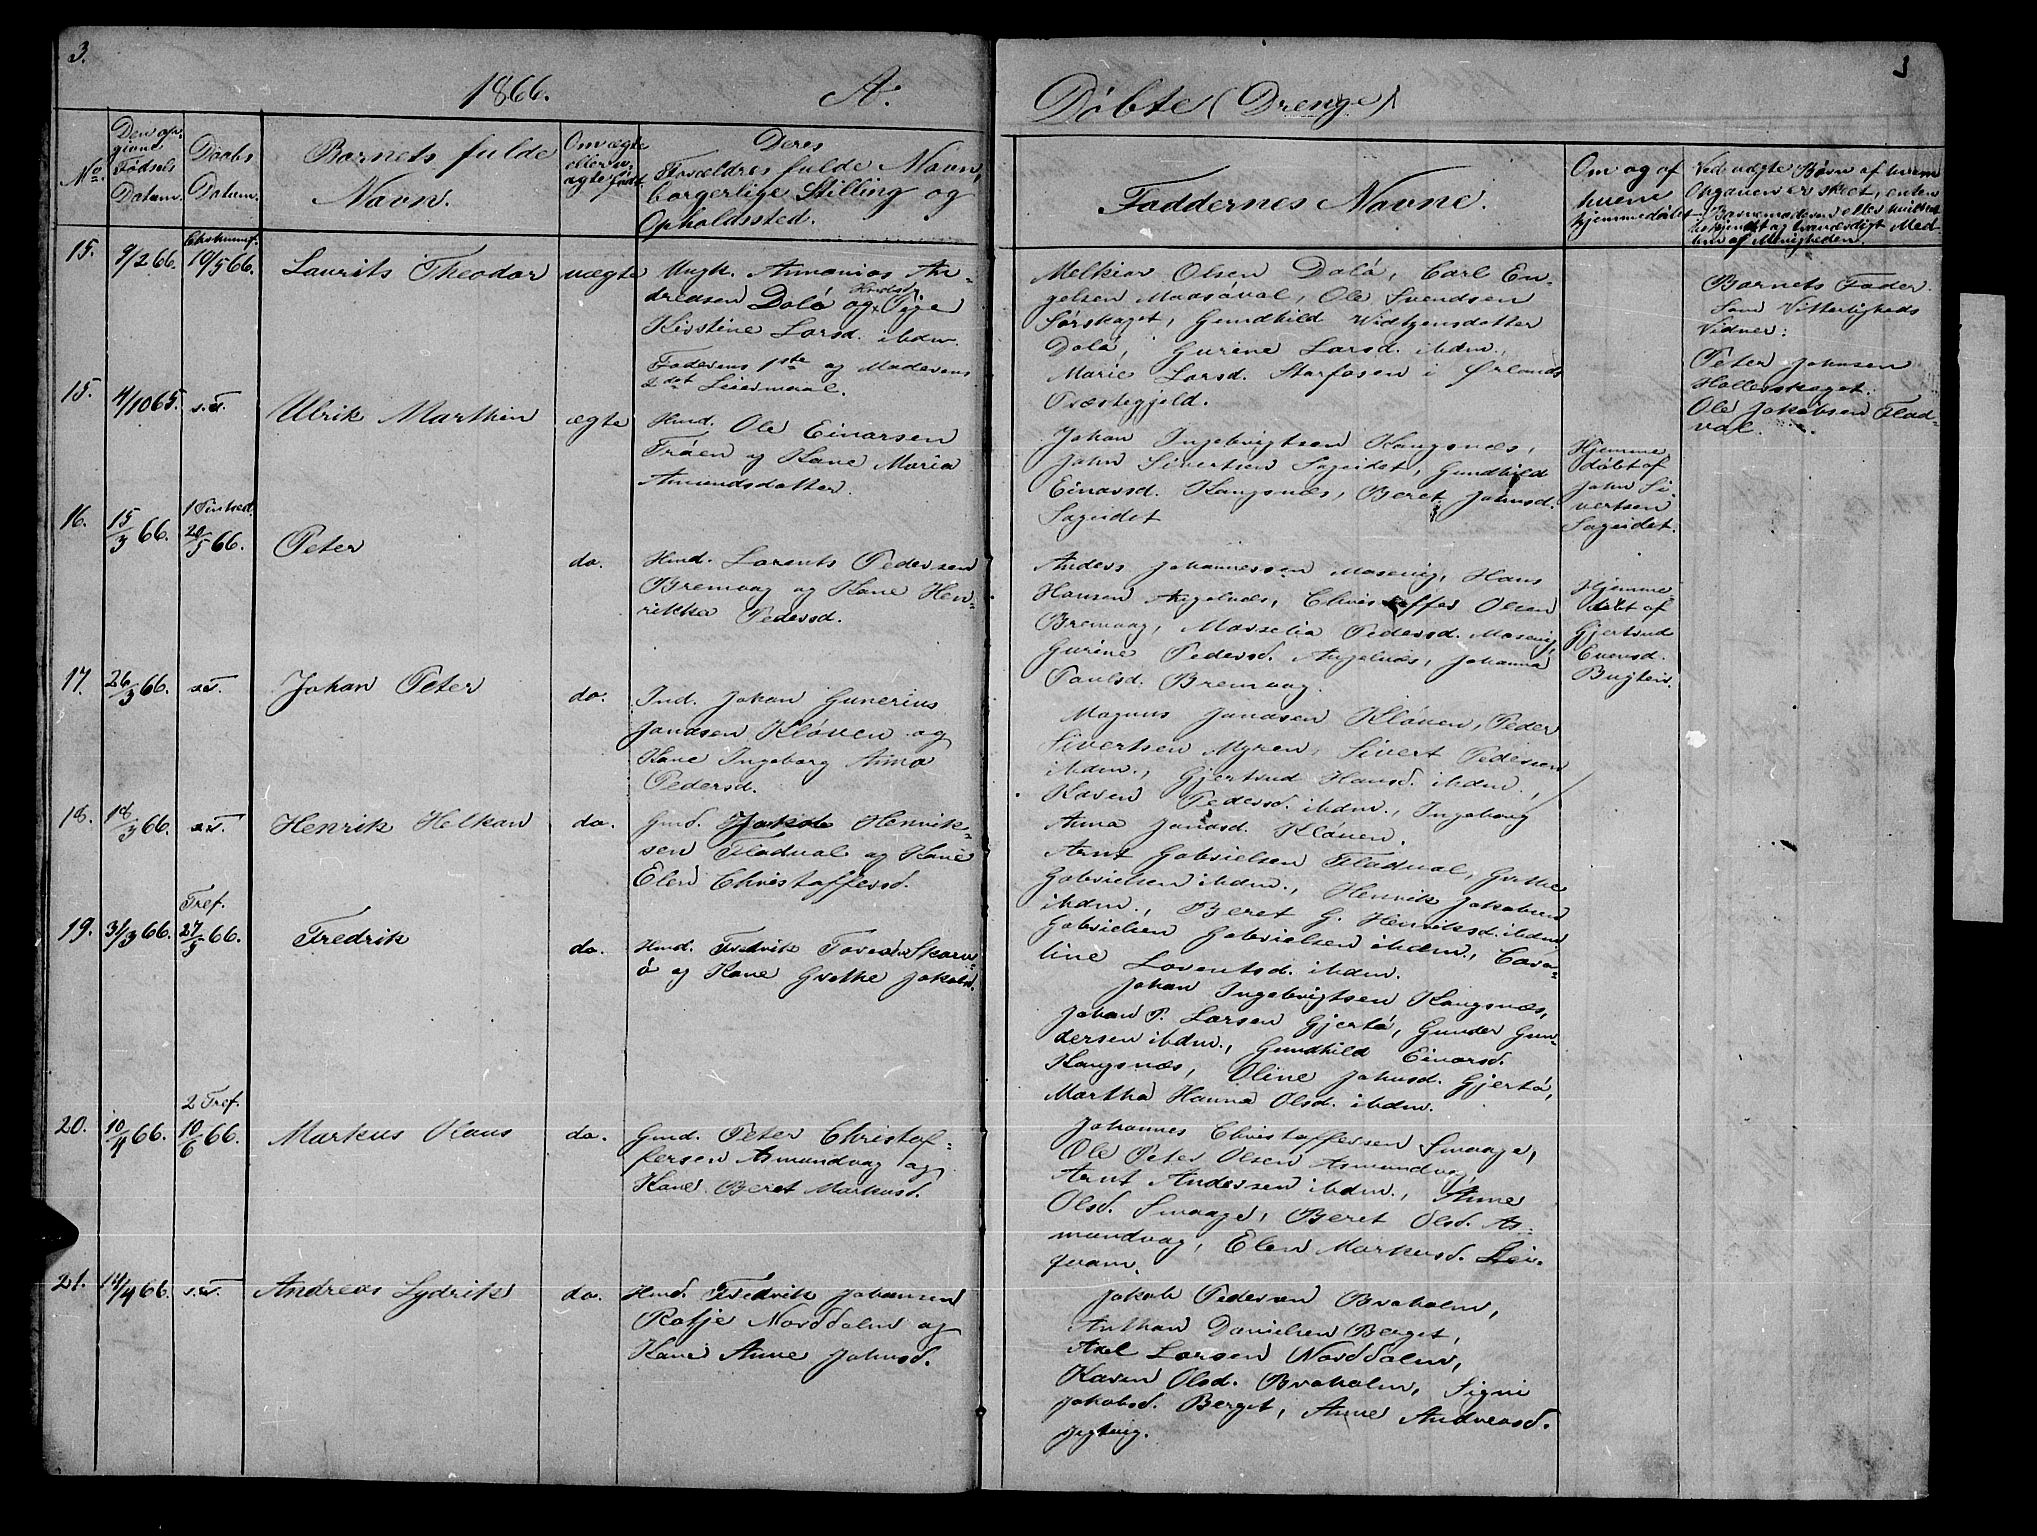 3.
1866.
A.
Døbte (Drenge)
3
No.
Den op-
givne
Fødsels
Datum.
Daabs
Datum.
Barnets fulde
Navn.
Om ægte
eller u-
ægte født.
Deres
Forældres fulde Navn,
borgerlige Stilling og
Opholdssted.
Faddernes Navne.
Om og af
hvem
hjemmedøbt
Ved uægte Børn af hvem
Opgaven er skeet, enten
Barnemoderen eller hvilket
bekjendt og troværdigt Med-
lem af Menigheden.
15.
9/2 66.
19/5 66.
Laurits Theodor
uægte
Ungk. Annanias An-
dredsen Dolø og Pige
Kirstine Larsd. ibdm.
Faderens 1ste og Moderens
2det Leiermaal.
Melkior Olsen Dolø, Carl En-
gelsen Maasøval, Ole Svendsen
Sørskaget, Gundhild
Dolø, Gurine Larsd. ibdm.,
Marie Larsd. i Ørlands
Præstegjeld.
Barnets Fader.
Som Vitterligheds
Vidner:
Peter Johnsen
Hallerskaget.
Ole Jakobsen Flad-
val.
15.
4/10 65.
s.d.
Ulrik Marthin
ægte
Hmd. Ole Einarsen
Trøen og Kone Maria
Amundsdatter.
Johan Ingebrigtsen Kongsnæs,
John Sivertsen Sageidet, Gundhild
Einarsd. Kongsnæs, Beret Johnsd.
Sageidet
Hjemme
døbt af
John Si-
vertsen
Sageidet.
16.
15/3 66.
20/5 66.
Peter
do.
Hmd. Lorents Pedersen
Bremvag og Kone Hen-
rikka Pedersd.
Anders Johannessen Masevig, Hans
Hansen Angelnæs, Christoffer Olsen
Bremvag, Marselia Pedersd. Masevig,
Gurine Pedersd. Angelnæs, Johanna
Paulsd. Bremvag.
Hjemme-
døbt af
Gjertrud
Evensd.
Bugten.
17.
26/3 66.
s.d.
Johan Peter
do.
Ind. Johan Gunerius
Jonasen Kløven og
Kone Ingeborg Anna
Pedersd.
Magnus Jonasen Kløven, Peder
Sivertsen Myren, Sivert Pedersen
ibdm., Gjertrud Hansd. ibdm.,
Karen Pedersd. ibdm., Ingeborg
Anna Jonasd. Kløven.
18.
18/3 66.
s.d.
Henrik Helkan
do.
Gmd. Jakob Henrik-
sen Fladval og Kone
Elen Christoffersd.
Arnt Gabrielsen Fladval, Grethe
Gabrielsen ibdm., Henrik Jakobsen
ibdm., Beret G. Henriksd. ibdm.
Gabrielsen Gabrielsen ibdm., Caro-
line Lorentsd. ibdm.
19.
31/3 66.
Tref.
27/5 66.
Fredrik
do.
Hmd. Fredrik
ø og Kone Grethe Jakobsd.
Johan Ingebrigtsen Kongsnæs,
Johan P. Larsen Gjertø, Gunder Gun-
dersen ibdm., Gundhild Einarsd.
Kongsnæs, Oline Johnsd. Gjertø,
Martha Hanna Olsd. ibdm.
20.
10/4 66.
2 Tref.
10/6 66.
Markus Klaus
do.
Gmd. Peter Christof-
fersen Asmundvag og
Kone Beret Markusd.
Johannes Christoffersen Smaage,
Ole Peter Olsen Asmundvag,
Arnt Andersen ibdm., Anne
Olsd. Smaage, Beret Olsd. As-
mundvag, Elen Markusd.
21.
14/4 66.
s.d.
Andreas Lydrik
do.
Hmd. Fredrik Johansen
Norddalen og
Kone Anne Johnsd.
Jakob Pedersen Braholm,
Anthon Danielsen Berget,
Axel Larsen Norddalen,
Karen Olsd. Braholm, Signi
Jakobsd. Berget, Anne Andreasd.
Jegtvig.